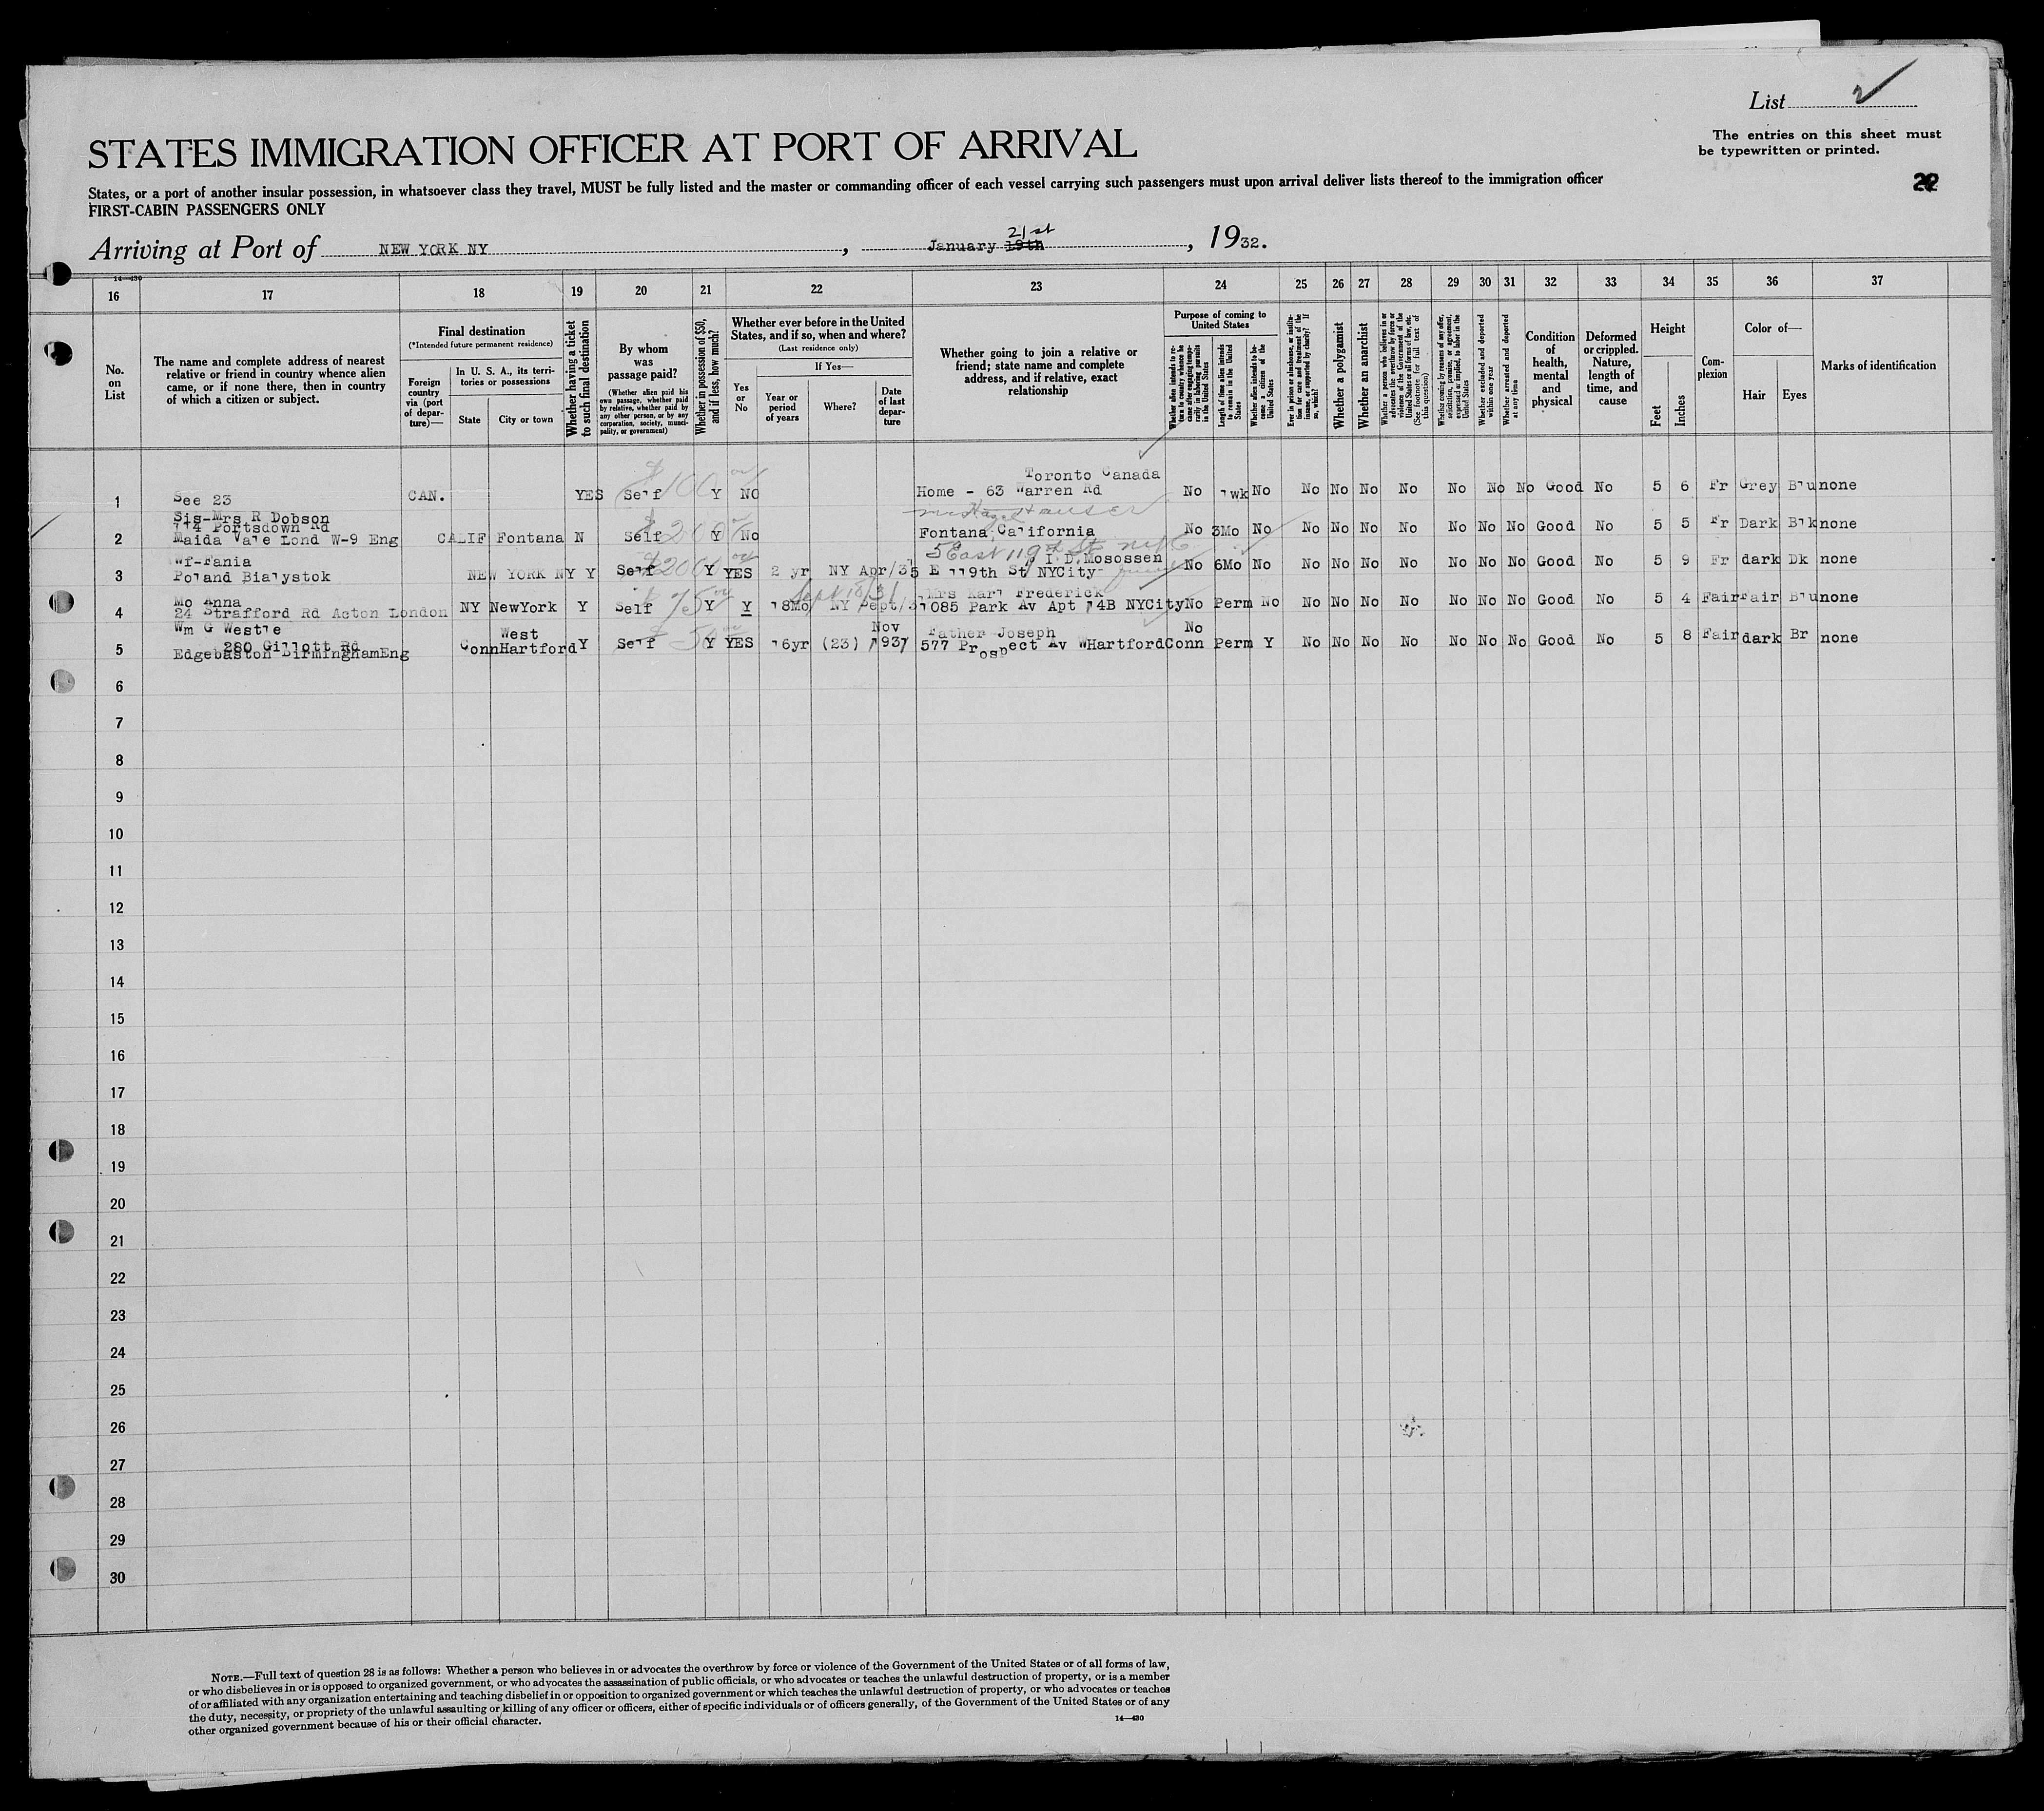 List 2
The entries on this sheet must
be typewritten or printed.
STATES IMMIGRATION OFFICER AT PORT OF ARRIVAL
States, or a port of another insular possession, in whatsoever class they travel, MUST be fully listed and the master or commanding officer of each vessel carrying such passengers must upon arrival deliver lists thereof to the immigration officer
FIRST-CABIN PASSENGERS ONLY
Arriving at Port of NEW YORK NY, January 19th 21st, 1932.
14—430
16 17 18 19 20 21 22 23 24 25 26 27 28 29 30 31 32 33 34 35 36 37
No.
on
List
The name and complete address of nearest
relative or friend in country whence alien
came, or if none there, then in country
of which a citizen or subject.
Final destination
(*Intended future permanent residence)
Foreign
country
via (port
of depar-
ture)—
In U. S. A., its terri-
tories or possessions
State
City or town
Whether having a ticket
to such final destination
By whom
was
passage paid?
(Whether alien paid his
own passage, whether paid
by relative, whether paid
by any other person, or by any
corporation, society, munici-
pality, or government)
Whether in possession of $50,
and if less, how much?
Whether ever before in the United
States, and if so, when and where?
(Last residence only)
Yes
or
No
If Yes—
Year or
period
of years
Where?
Date
of last
depar-
ture
Whether going to join a relative or
friend; state name and complete
address, and if relative, exact
relationship
Purpose of coming to
United States
Whether alien intends to re-
turn to country whence he
came after engaging tempo-
rarily in laboring pursuits
in the United States
Length of time alien intends
to remain in the United
States
Whether alien intends to be-
come a citizen of the
United States
Ever in prison or almshouse, or institu-
tion for care and treatment of the
insane, or supported by charity? If
so, which?
Whether a polygamist
Whether an anarchist
Whether a person who believes in or
advocates the overthrow by force or
violence of the Government of the
United States or all forms of law, etc.
(See footnote for full text of
this question)
Whether coming by reasons of any offer,
solicitation, promise, or agreement,
expressed or implied, to labor in the
United States
Whether excluded and deported
within one year
Whether arrested and deported
at any time
Condition
of
health,
mental
and
physical
Deformed
or crippled.
Nature,
length of
time, and
cause
Height
Feet
Inches
Com-
plexion
Color of—
Hair
Eyes
Marks of identification
Toronto Canada
1 See 23 CAN. YES Self $100 00 Y NO Home - 63 Warren Rd No 1wk No No No No No No No No Good No 5 6 Fr Grey Blu none
Sis-Mrs R Dobson
114 Portsdown Rd
2 Maida Vale Lond W-9 Eng CALIF Fontana N Self $200 Y No Fontana California No 3Mo No No No No No No No No Good No 5 5 Fr Dark Blk none
5 East 119th St NYC
Wf-Fania I.D.Mosossen
3 Poland Bialystok NEW YORK NY Y Self $200 00 Y YES 2 yr NY Apr/31 5 E 119th St NYCity No 6Mo No No No No No No No No Good No 5 9 Fr dark Dk none
Mo Anna Sept 18/31 Mrs Karl Frederick
4 24 Strafford Rd Acton London NY NewYork Y Self $75 00 Y Y 18Mo NY Sept/31 1085 Park Av Apt 14B NYCity No Perm No No No No No No No No Good No 5 4 Fair Fair Blu none
Wm G Westle West Nov Father Joseph No
280 Gillott Rd
5 Edgebaston BirminghamEng Conn Hartford Y Self $50 00 Y YES 16yr (23) 1931 577 Prospect Av WHartford Conn Perm Y No No No No No No No Good No 5 8 Fair dark Br none
6
7
8
9
10
11
12
13
14
15
16
17
18
19
20
21
22
23
24
25
26
27
28
29
30
NOTE.—Full text of question 28 is as follows: Whether a person who believes in or advocates the overthrow by force or violence of the Government of the United States or of all forms of law,
or who disbelieves in or is opposed to organized government, or who advocates the assassination of public officials, or who advocates or teaches the unlawful destruction of property, or is a member
of or affiliated with any organization entertaining and teaching disbelief in or opposition to organized government or which teaches the unlawful destruction of property, or who advocates or teaches
the duty, necessity, or propriety of the unlawful assaulting or killing of any officer or officers, either of specific individuals or of officers generally, of the Government of the United States or of any
other organized government because of his or their official character.
14—430